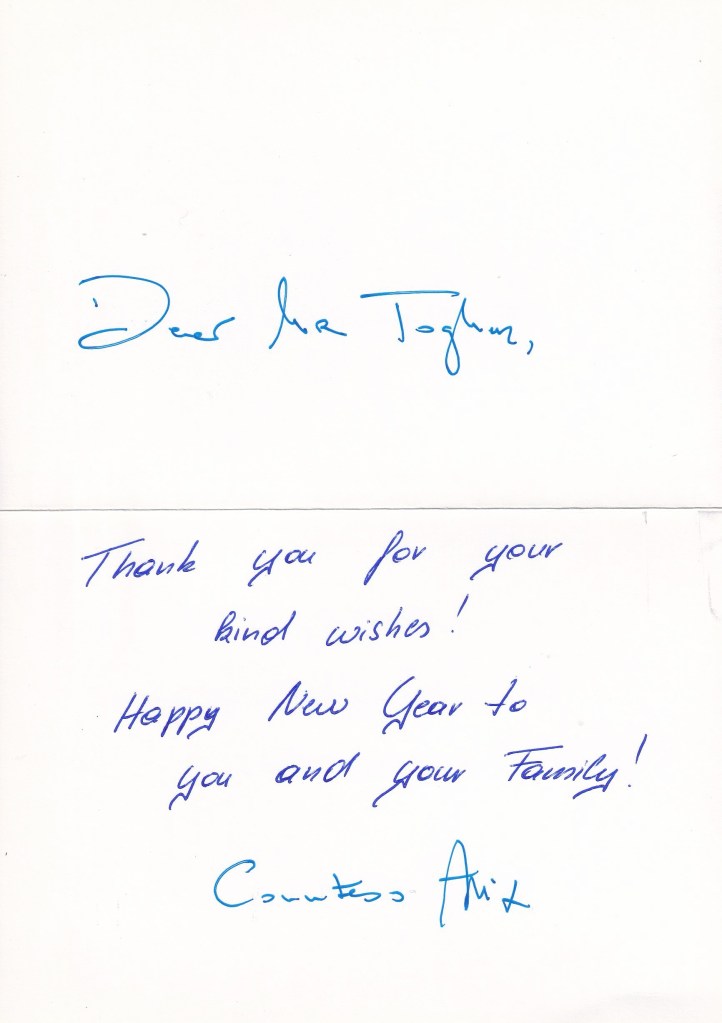 Dear Mr
Thank you for your
kind wishes!
Happy New Year to
you and your Family!
Countess Alix